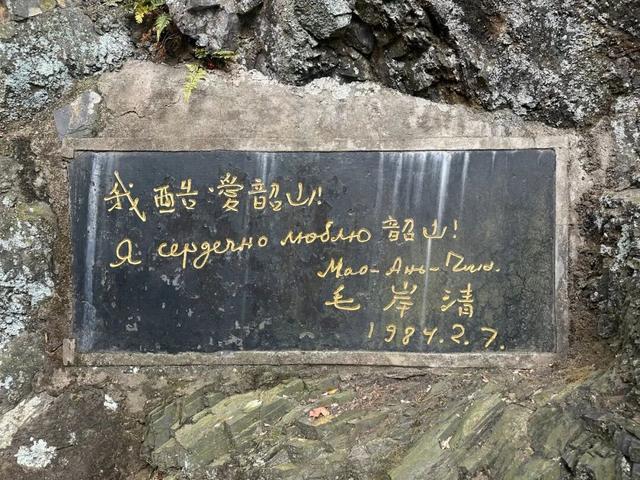 我酷爱韶山!
Я сердечно люблю 韶山!
Мао-Ань-Чин.
毛岸清
1984.2.7.